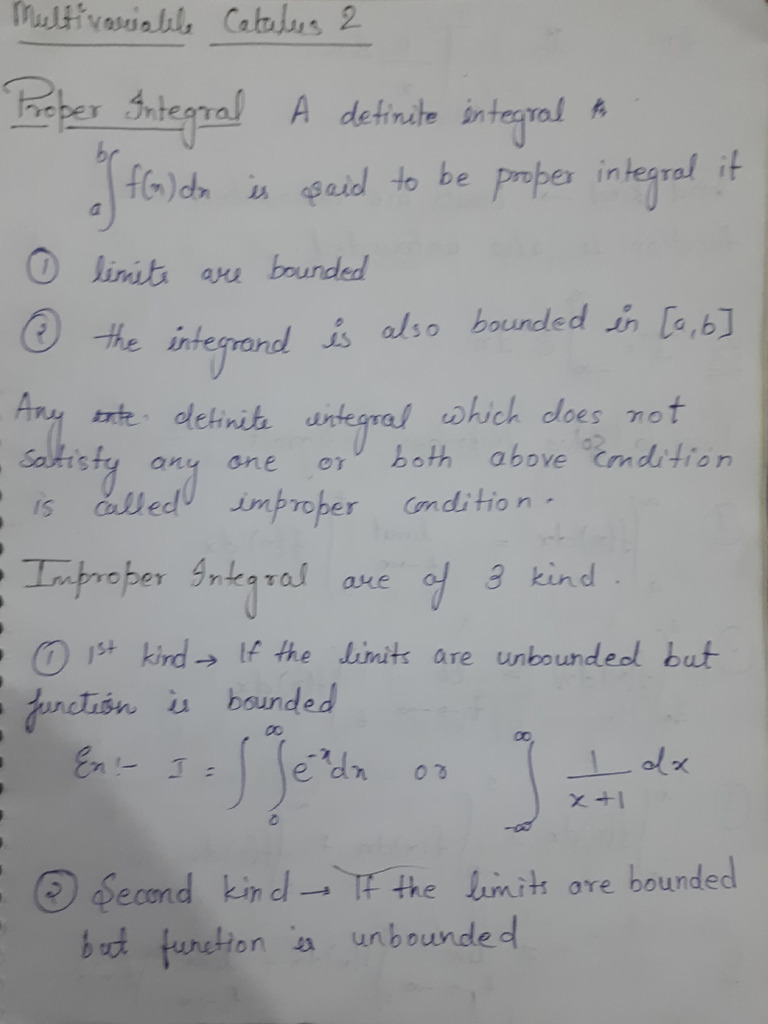 Multivariable Calculus 2
Proper Integral A definite integral
∫ₐᵇ f(x)dx is said to be proper integral if
① limits are bounded
② the integrand is also bounded in [a,b]
Any definite integral which does not
satisfy any one or both above condition
is called improper condition.
Improper Integral are of 3 kind.
① 1st kind → If the limits are unbounded but
function is bounded
Ex:- I = ∫ ∫₀^∞ e⁻ˣdx or ∫₋∞^∞ 1/(x+1) dx
② Second kind → If the limits are bounded
but function is unbounded